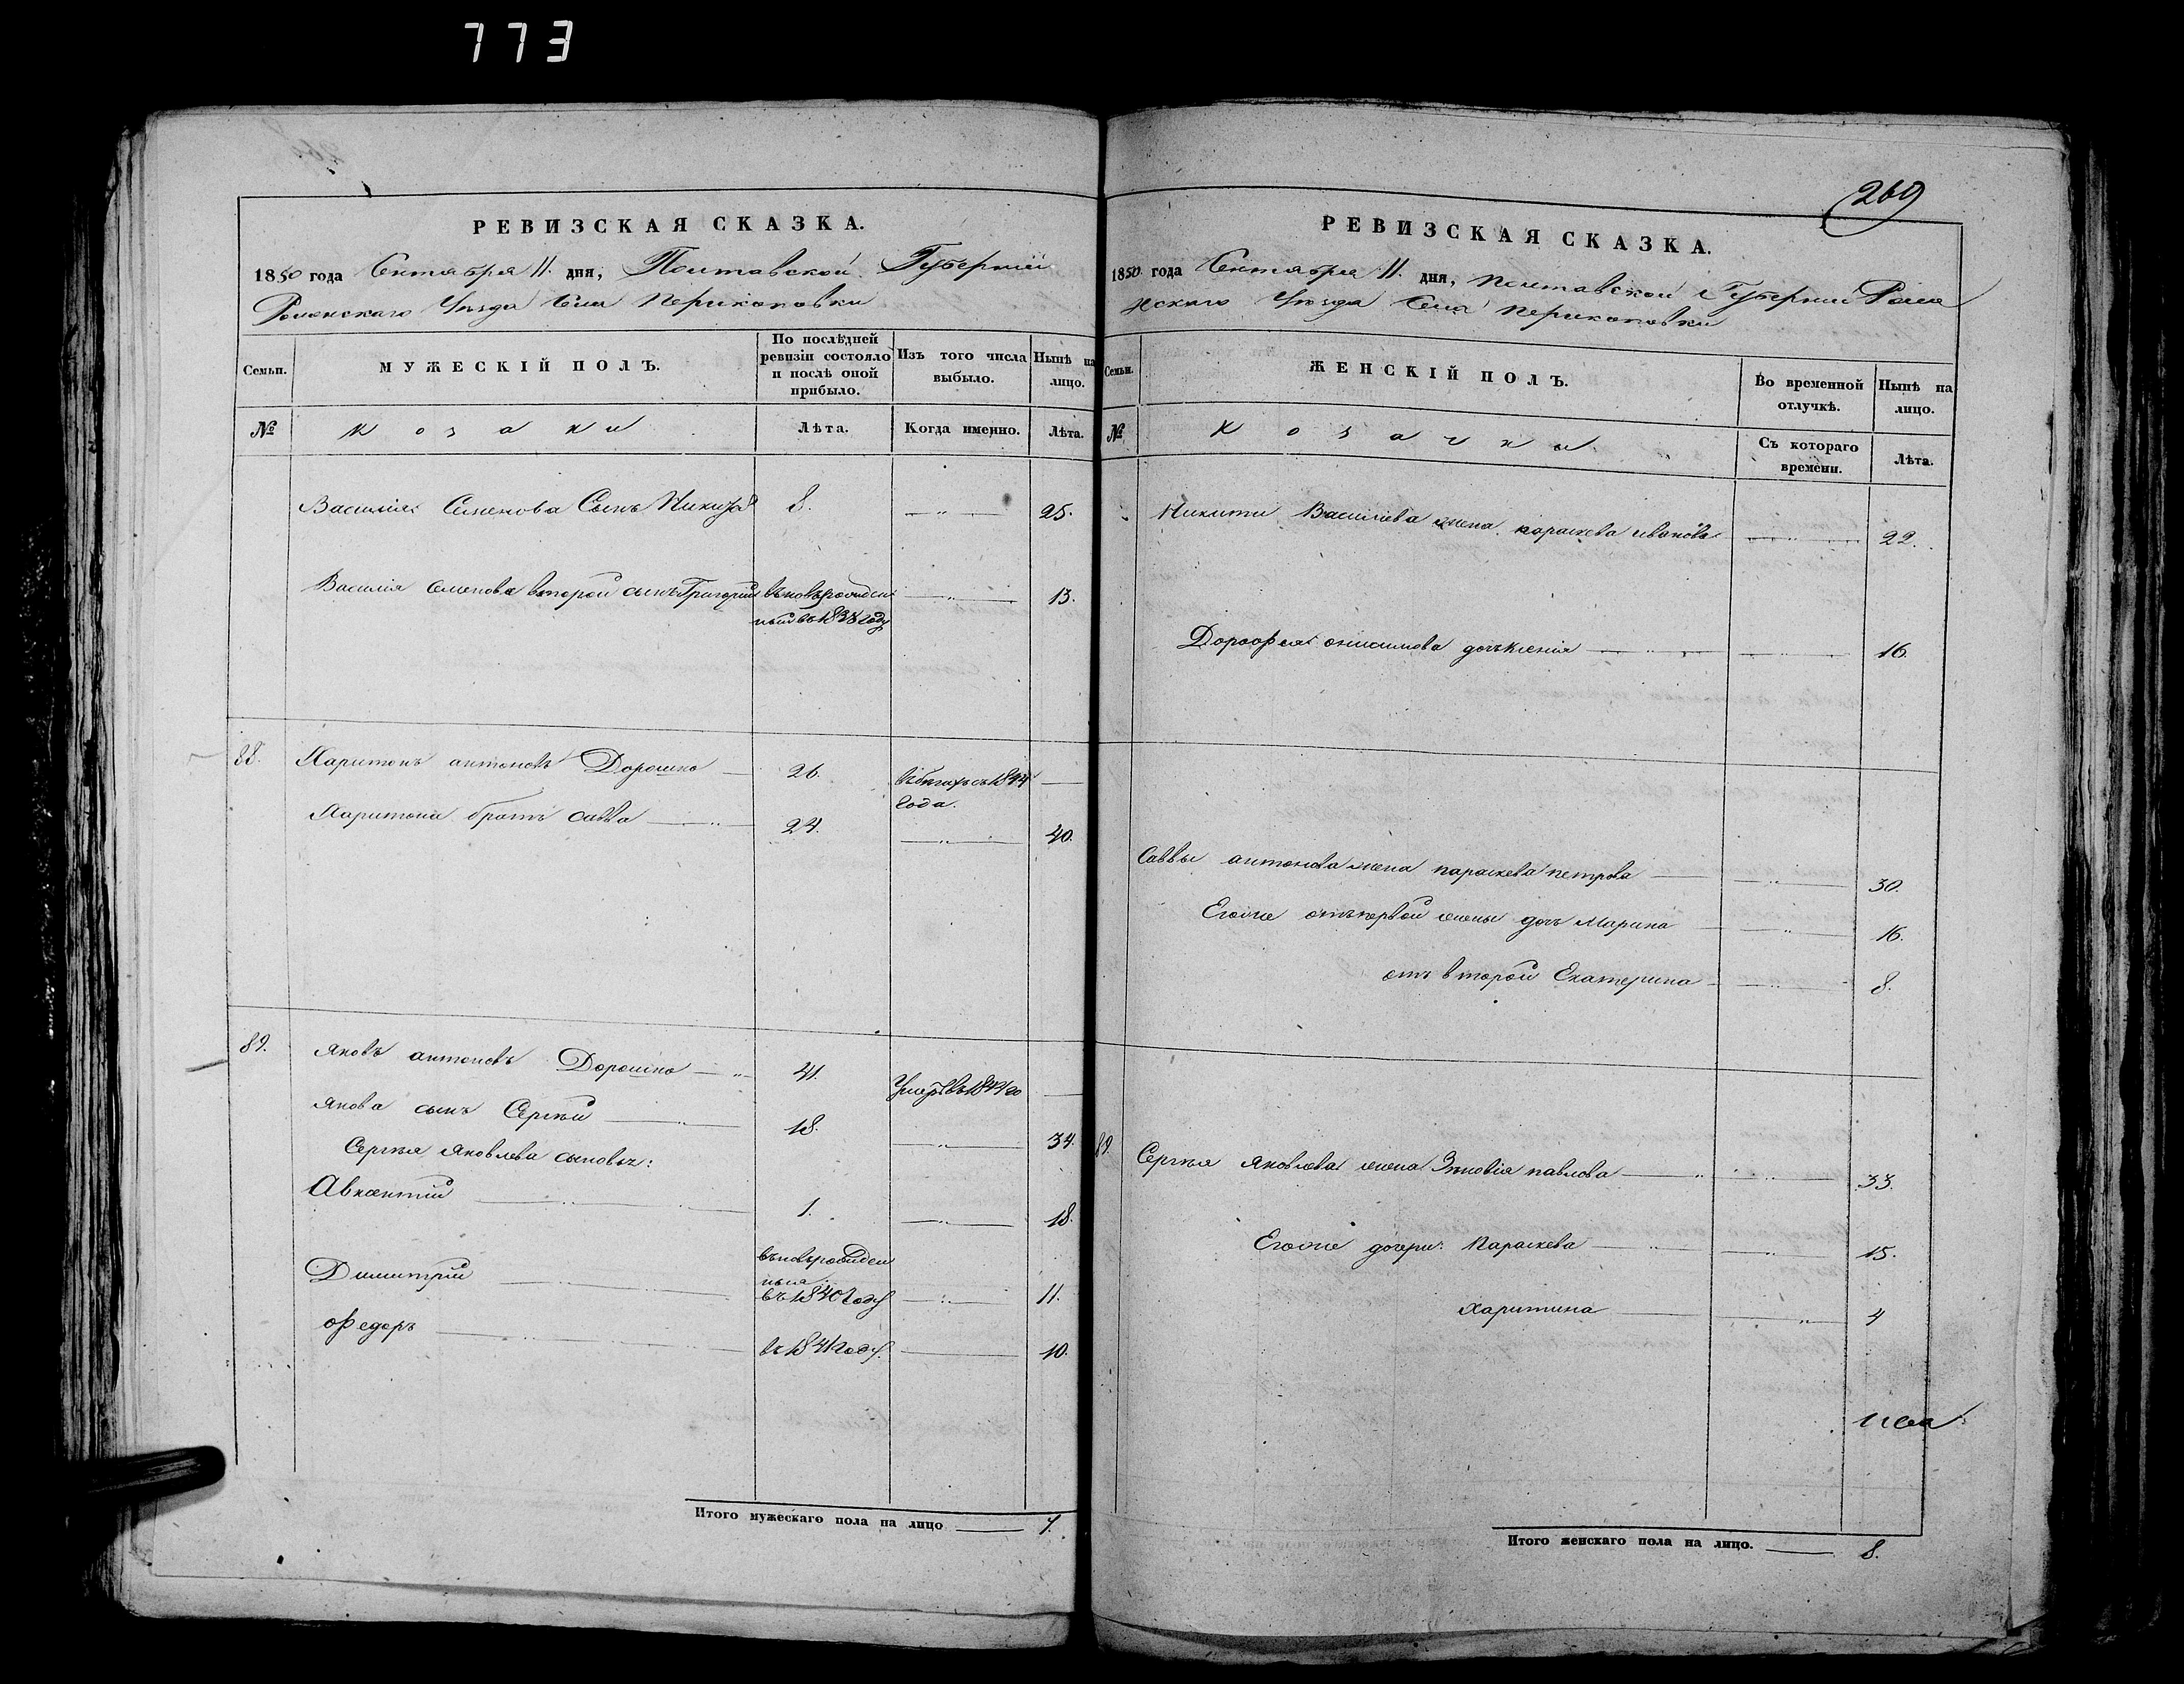 773
РЕВИЗСКАЯ СКАЗКА.
1850 года Сентября 11. дня, Полтавской Губерніи
Роменскаго Уезда Села Перекоповки
Семьи.
МУЖЕСКІЙ ПОЛЪ.
По послѣдней ревизіи состояло и послѣ оной прибыло.
Изъ того числа выбыло.
Нынѣ на лицо.
№
Козаки
Лѣта.
Когда именно.
Лѣта.
Василія Семенова Сынъ Никита 8. 25.
Василія Семенова второй сынъ Григорий вновьрожден 13.
ный въ 1838 году
88. Харитонъ антоновъ Дорошко 26. въбегахъ съ 1844
года.
Харитона братъ савва 24. 40.
89. Яковъ антоновъ Дорошко 41. Умеръ въ 1844 го
Якова сынъ Сергѣй 18. 34.
Сергѣя Яковлева сыновья:
Авксентий 1. 18.
вновьрожден
ныя
Димитрий въ 1840 году 11.
Федоръ въ 1841 году 10.
Итого мужескаго пола на лицо 7.
269
РЕВИЗСКАЯ СКАЗКА.
1850 года Сентября 11. дня, Полтавской Губерніи Роме
нскаго Уезда Села Перекоповки
Семьи.
ЖЕНСКІЙ ПОЛЪ.
Во временной отлучкѣ.
Нынѣ на лицо.
№
Козачки
Съ котораго времени.
Лѣта.
Никиты Василіева жена параскева иванова 22.
Дорофея онисимова дочь Ксенія 16.
Саввы антонова жена параскева петрова 30.
Егоже отъ первой жены дочь Марина 16.
отъ второй Екатерина 8.
89. Сергѣя Яковлева жена Зиновія павлова 33.
Егоже дочери: Параскева 15.
Харитина 4
Итого женскаго пола на лицо. 8.